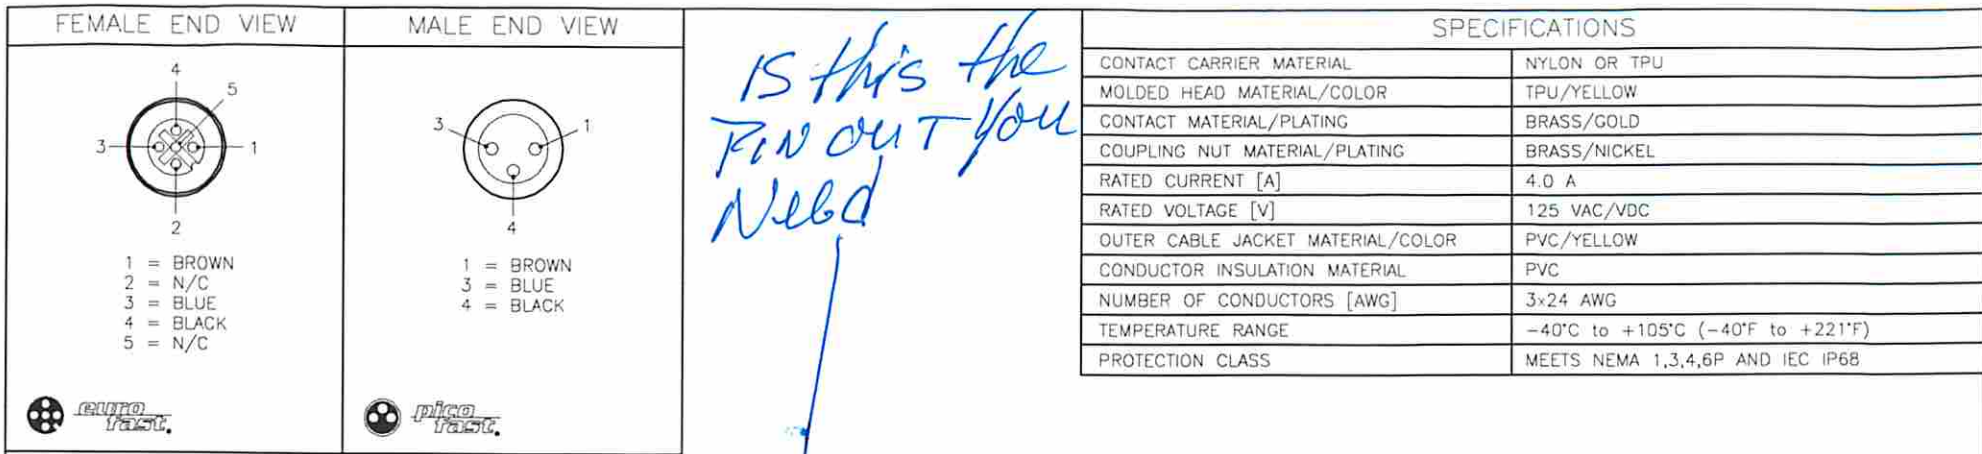 FEMALE END VIEW
4
5
3
1
2
1 = BROWN
2 = N/C
3 = BLUE
4 = BLACK
5 = N/C
euro
fast.
MALE END VIEW
3
1
4
1 = BROWN
3 = BLUE
4 = BLACK
pico
fast.
IS this the
PIN OUT YOU
Need
SPECIFICATIONS
CONTACT CARRIER MATERIAL NYLON OR TPU
MOLDED HEAD MATERIAL/COLOR TPU/YELLOW
CONTACT MATERIAL/PLATING BRASS/GOLD
COUPLING NUT MATERIAL/PLATING BRASS/NICKEL
RATED CURRENT [A] 4.0 A
RATED VOLTAGE [V] 125 VAC/VDC
OUTER CABLE JACKET MATERIAL/COLOR PVC/YELLOW
CONDUCTOR INSULATION MATERIAL PVC
NUMBER OF CONDUCTORS [AWG] 3x24 AWG
TEMPERATURE RANGE -40°C to +105°C (-40°F to +221°F)
PROTECTION CLASS MEETS NEMA 1,3,4,6P AND IEC IP68